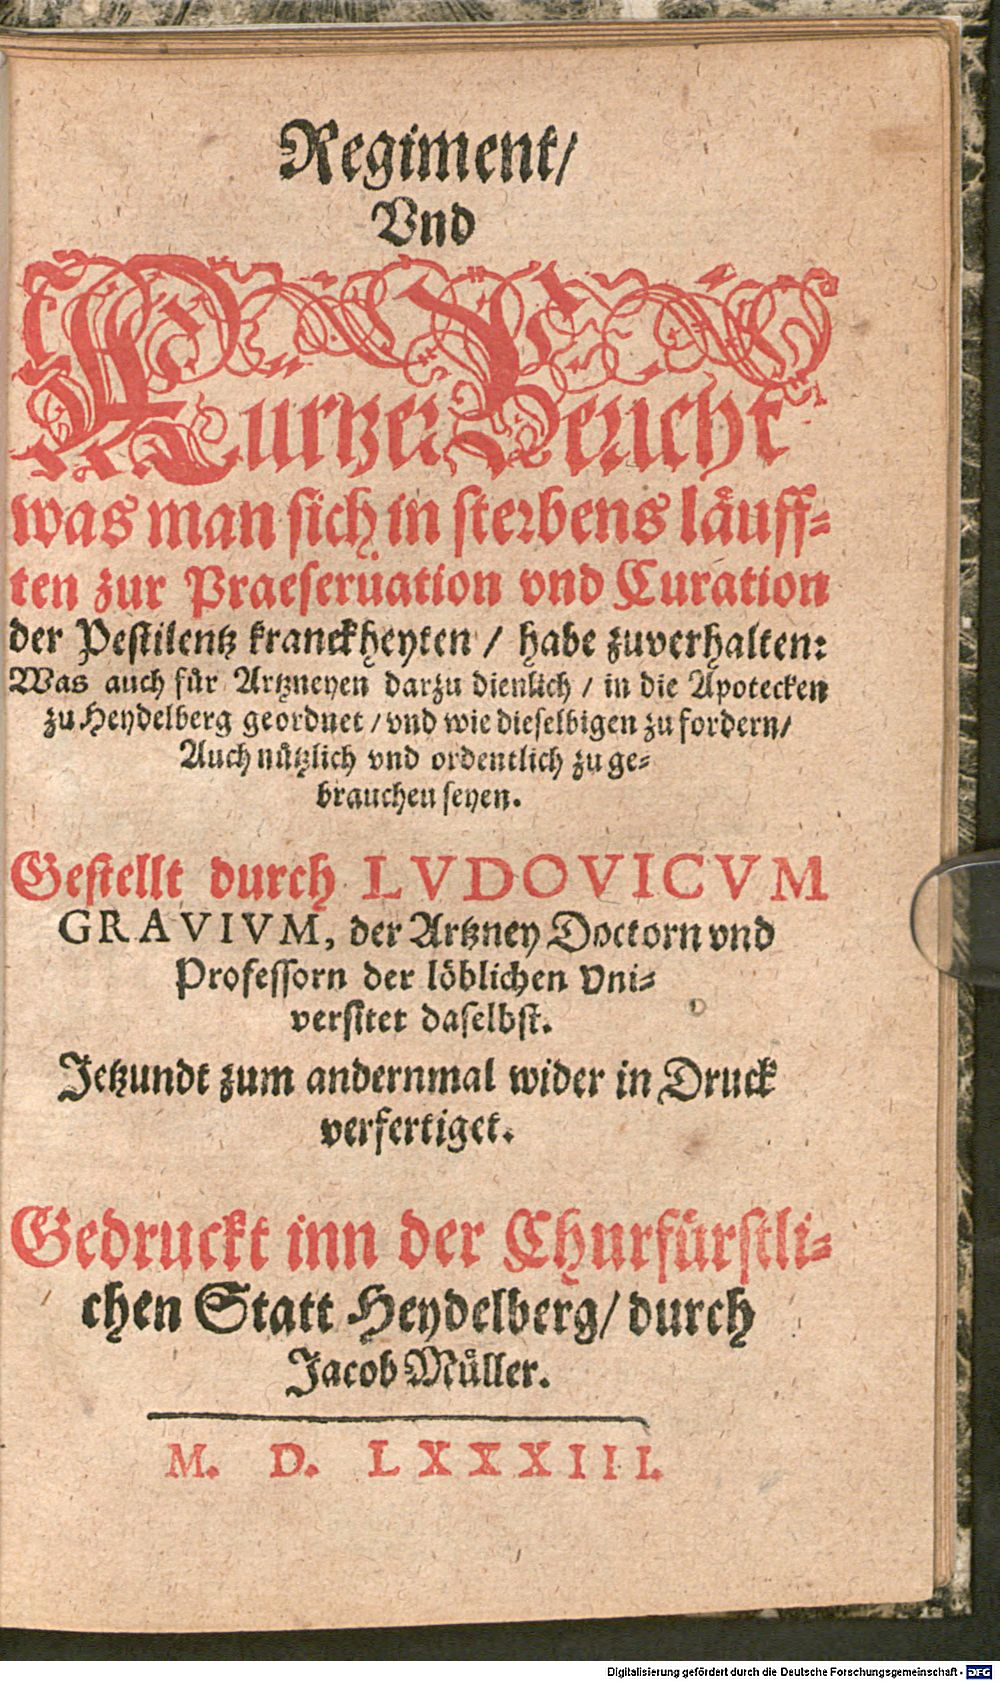 Regiment/
Vnd
Kurtzer Bericht
was man sich in sterbens läuff⸗
ten zur Praeseruation vnd Curation
der Pestilentz kranckheyten / habe zuverhalten:
Was auch für Artzneyen darzu dienlich / in die Apotecken
zu Heydelberg geordnet / vnd wie dieselbigen zu fordern/
Auch nützlich vnd ordentlich zu ge⸗
brauchen seyen.
Gestellt durch LVDOVICVM
GRAVIVM, der Artzney Doctorn vnd
Professorn der löblichen Vni⸗
versitet daselbst.
Jetzundt zum andernmal wider in Druck
verfertiget.
Gedruckt inn der Churfürstli⸗
chen Statt Heydelberg/ durch
Jacob Müller.
M. D. LXXXIII.
Digitalisierung gefördert durch die Deutsche Forschungsgemeinschaft - DFG